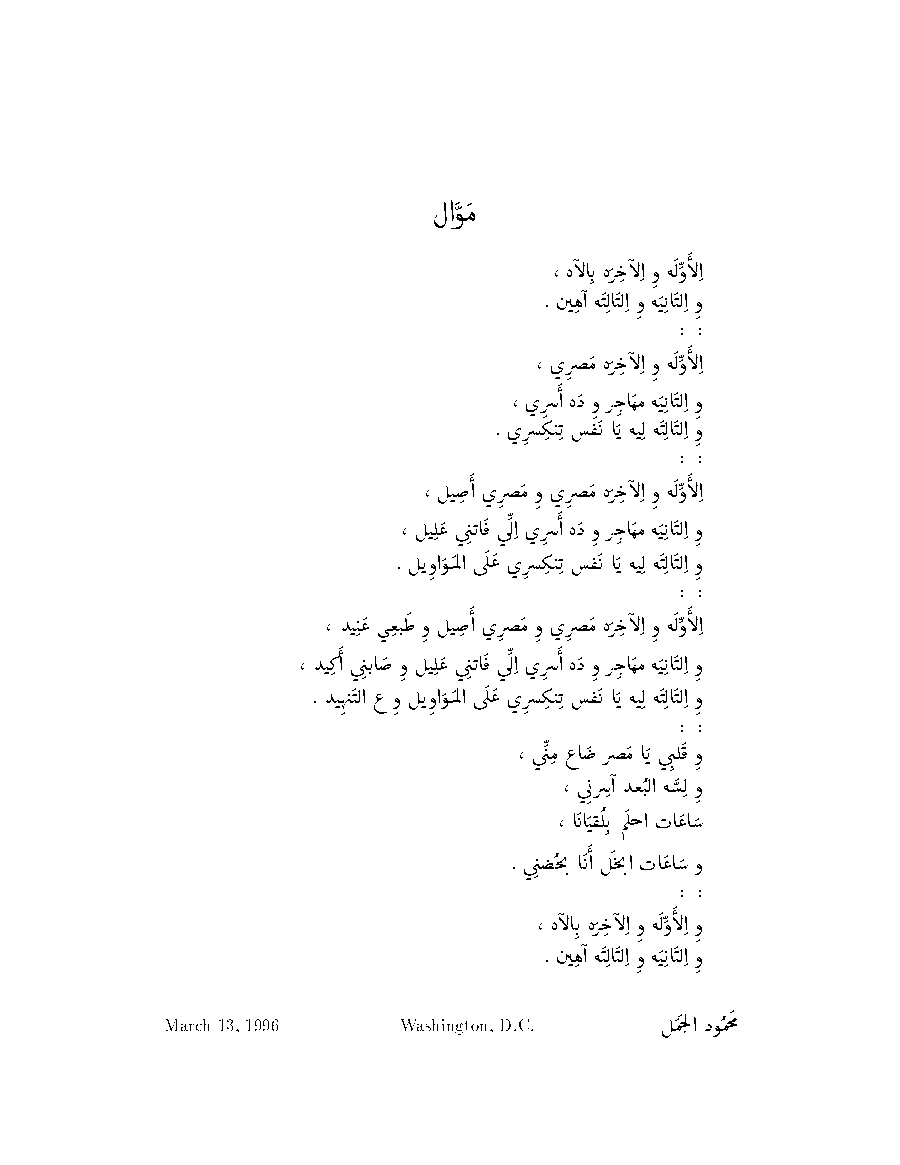 مَوَّال
اِلأَوِّلَه وِ اِلآخِرَه بِالآه ،
وِ اِلتَّانِيَه وِ اِلتَّالِتَه آهِين .
: :
اِلأَوِّلَه وِ اِلآخِرَه مَصرِي ،
وِ اِلتَّانِيَه مهَاجِر وِ دَه أَسرِي ،
وِ اِلتَّالِتَه لِيه يَا نَفَس تِنكِسرِي .
: :
اِلأَوِّلَه وِ اِلآخِرَه مَصرِي وِ مَصرِي أَصِيل ،
وِ اِلتَّانِيَه مهَاجِر وِ دَه أَسرِي اِلِّي فَاتنِي عَلِيل ،
وِ اِلتَّالِتَه لِيه يَا نَفس تِنكِسرِي عَلَى المَوَاوِيل .
: :
اِلأَوِّلَه وِ اِلآخِرَه مَصرِي وِ مَصرِي أَصِيل وِ طَبعِي عَنِيد ،
وِ اِلتَّانِيَه مهَاجِر وِ دَه أَسرِي اِلِّي فَاتنِي عَلِيل وِ صَابنِي أَكِيد ،
وِ اِلتَّالِتَه لِيه يَا نَفس تِنكِسرِي عَلَى المَوَاوِيل وِ ع التَّنهِيد .
: :
وِ قَلبِي يَا مَصر ضَاع مِنِّي ،
وِ لِسَّه البُعد آسِرنِي ،
سَاعَات احلَم بِلُقيَانَا ،
و سَاعَات ابخَل أَنَا بحُضنِي .
: :
وِ اِلأَوِّلَه وِ اِلآخِرَه بِالآه ،
وِ اِلتَّانِيَه وِ اِلتَّالِتَه آهِين .
مَحمُود الجَمَل Washington, D.C. March 13, 1996